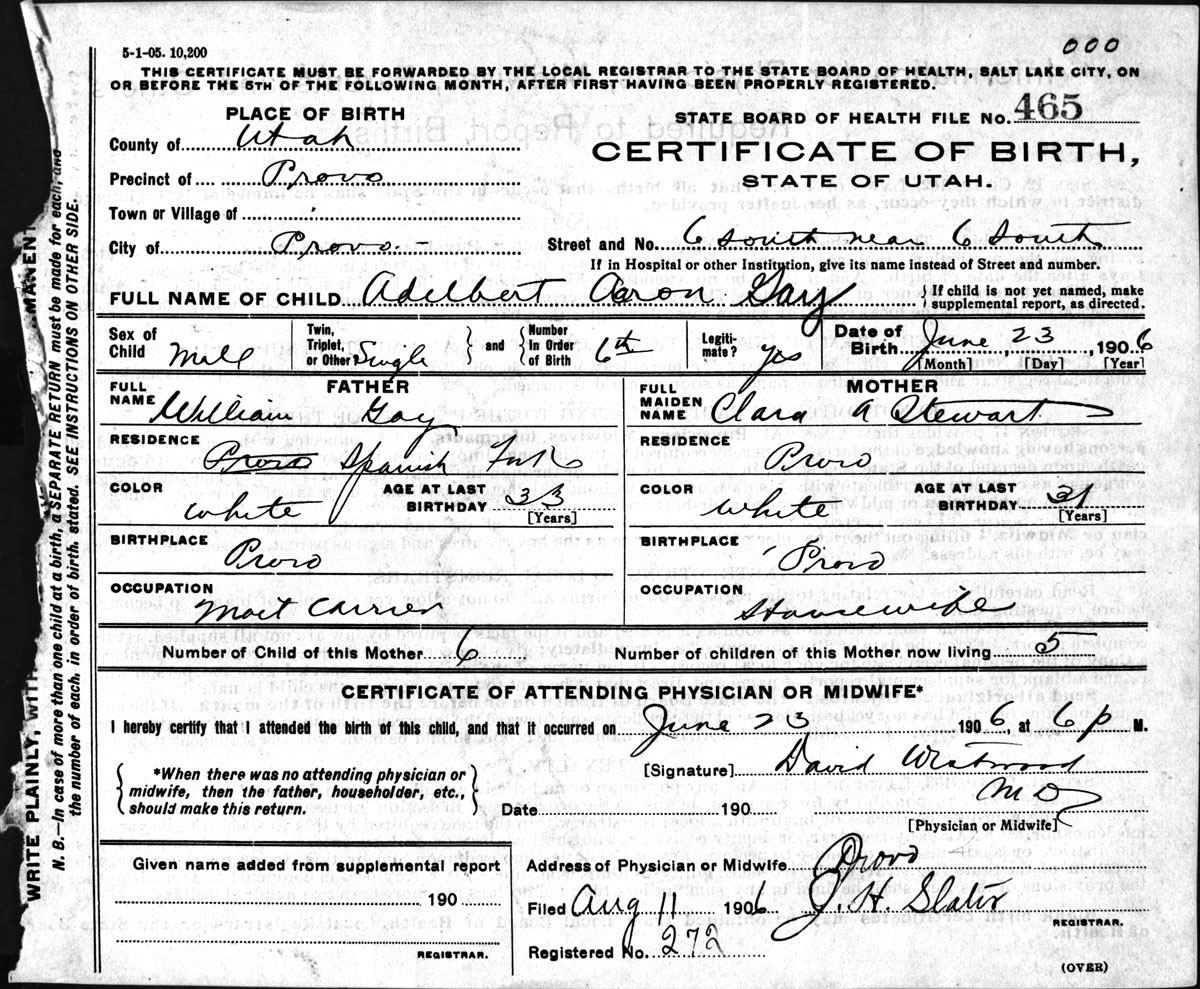 5-1-05. 10,200
000
THIS CERTIFICATE MUST BE FORWARDED BY THE LOCAL REGISTRAR TO THE STATE BOARD OF HEALTH, SALT LAKE CITY, ON
OR BEFORE THE 5TH OF THE FOLLOWING MONTH, AFTER FIRST HAVING BEEN PROPERLY REGISTERED.
PLACE OF BIRTH
STATE BOARD OF HEALTH FILE No. 465
County of Utah
CERTIFICATE OF BIRTH,
Precinct of Provo
STATE OF UTAH.
Town or Village of
City of Provo.
Street and No. 6 south near 6 South
If in Hospital or other Institution, give its name instead of Street and number.
FULL NAME OF CHILD Adelbert Aaron Gay
{ If child is not yet named, make
supplemental report, as directed.
Sex of Child Mell
Twin, Triplet, or Other? Single
and
Number In Order of Birth 6th
Legiti-mate? yes
Date of Birth June 23, 1906
[Month] [Day] [Year]
FATHER
FULL NAME William Gay
MOTHER
FULL MAIDEN NAME Clara A Stewart
RESIDENCE Provo Spanish Fork
RESIDENCE Provo
COLOR white
AGE AT LAST BIRTHDAY 33
[Years]
COLOR white
AGE AT LAST BIRTHDAY 31
[Years]
BIRTHPLACE Provo
BIRTHPLACE Provo
OCCUPATION Mail Carrier
OCCUPATION Housewife
Number of Child of this Mother 6
Number of children of this Mother now living 5
CERTIFICATE OF ATTENDING PHYSICIAN OR MIDWIFE*
I hereby certify that I attended the birth of this child, and that it occurred on June 23 1906, at 6 p M.
*When there was no attending physician or
midwife, then the father, householder, etc.,
should make this return.
[Signature] David Westwood
M D
Date 190
[Physician or Midwife]
Given name added from supplemental report
190
REGISTRAR.
Address of Physician or Midwife Provo
Filed Aug 11 1906 J. H. Slater
REGISTRAR.
Registered No. 272
(OVER)
WRITE PLAINLY, WITH MANENT
N. B.—In case of more than one child at a birth, a SEPARATE RETURN must be made for each, and
the number of each, in order of birth, stated. SEE INSTRUCTIONS ON OTHER SIDE.